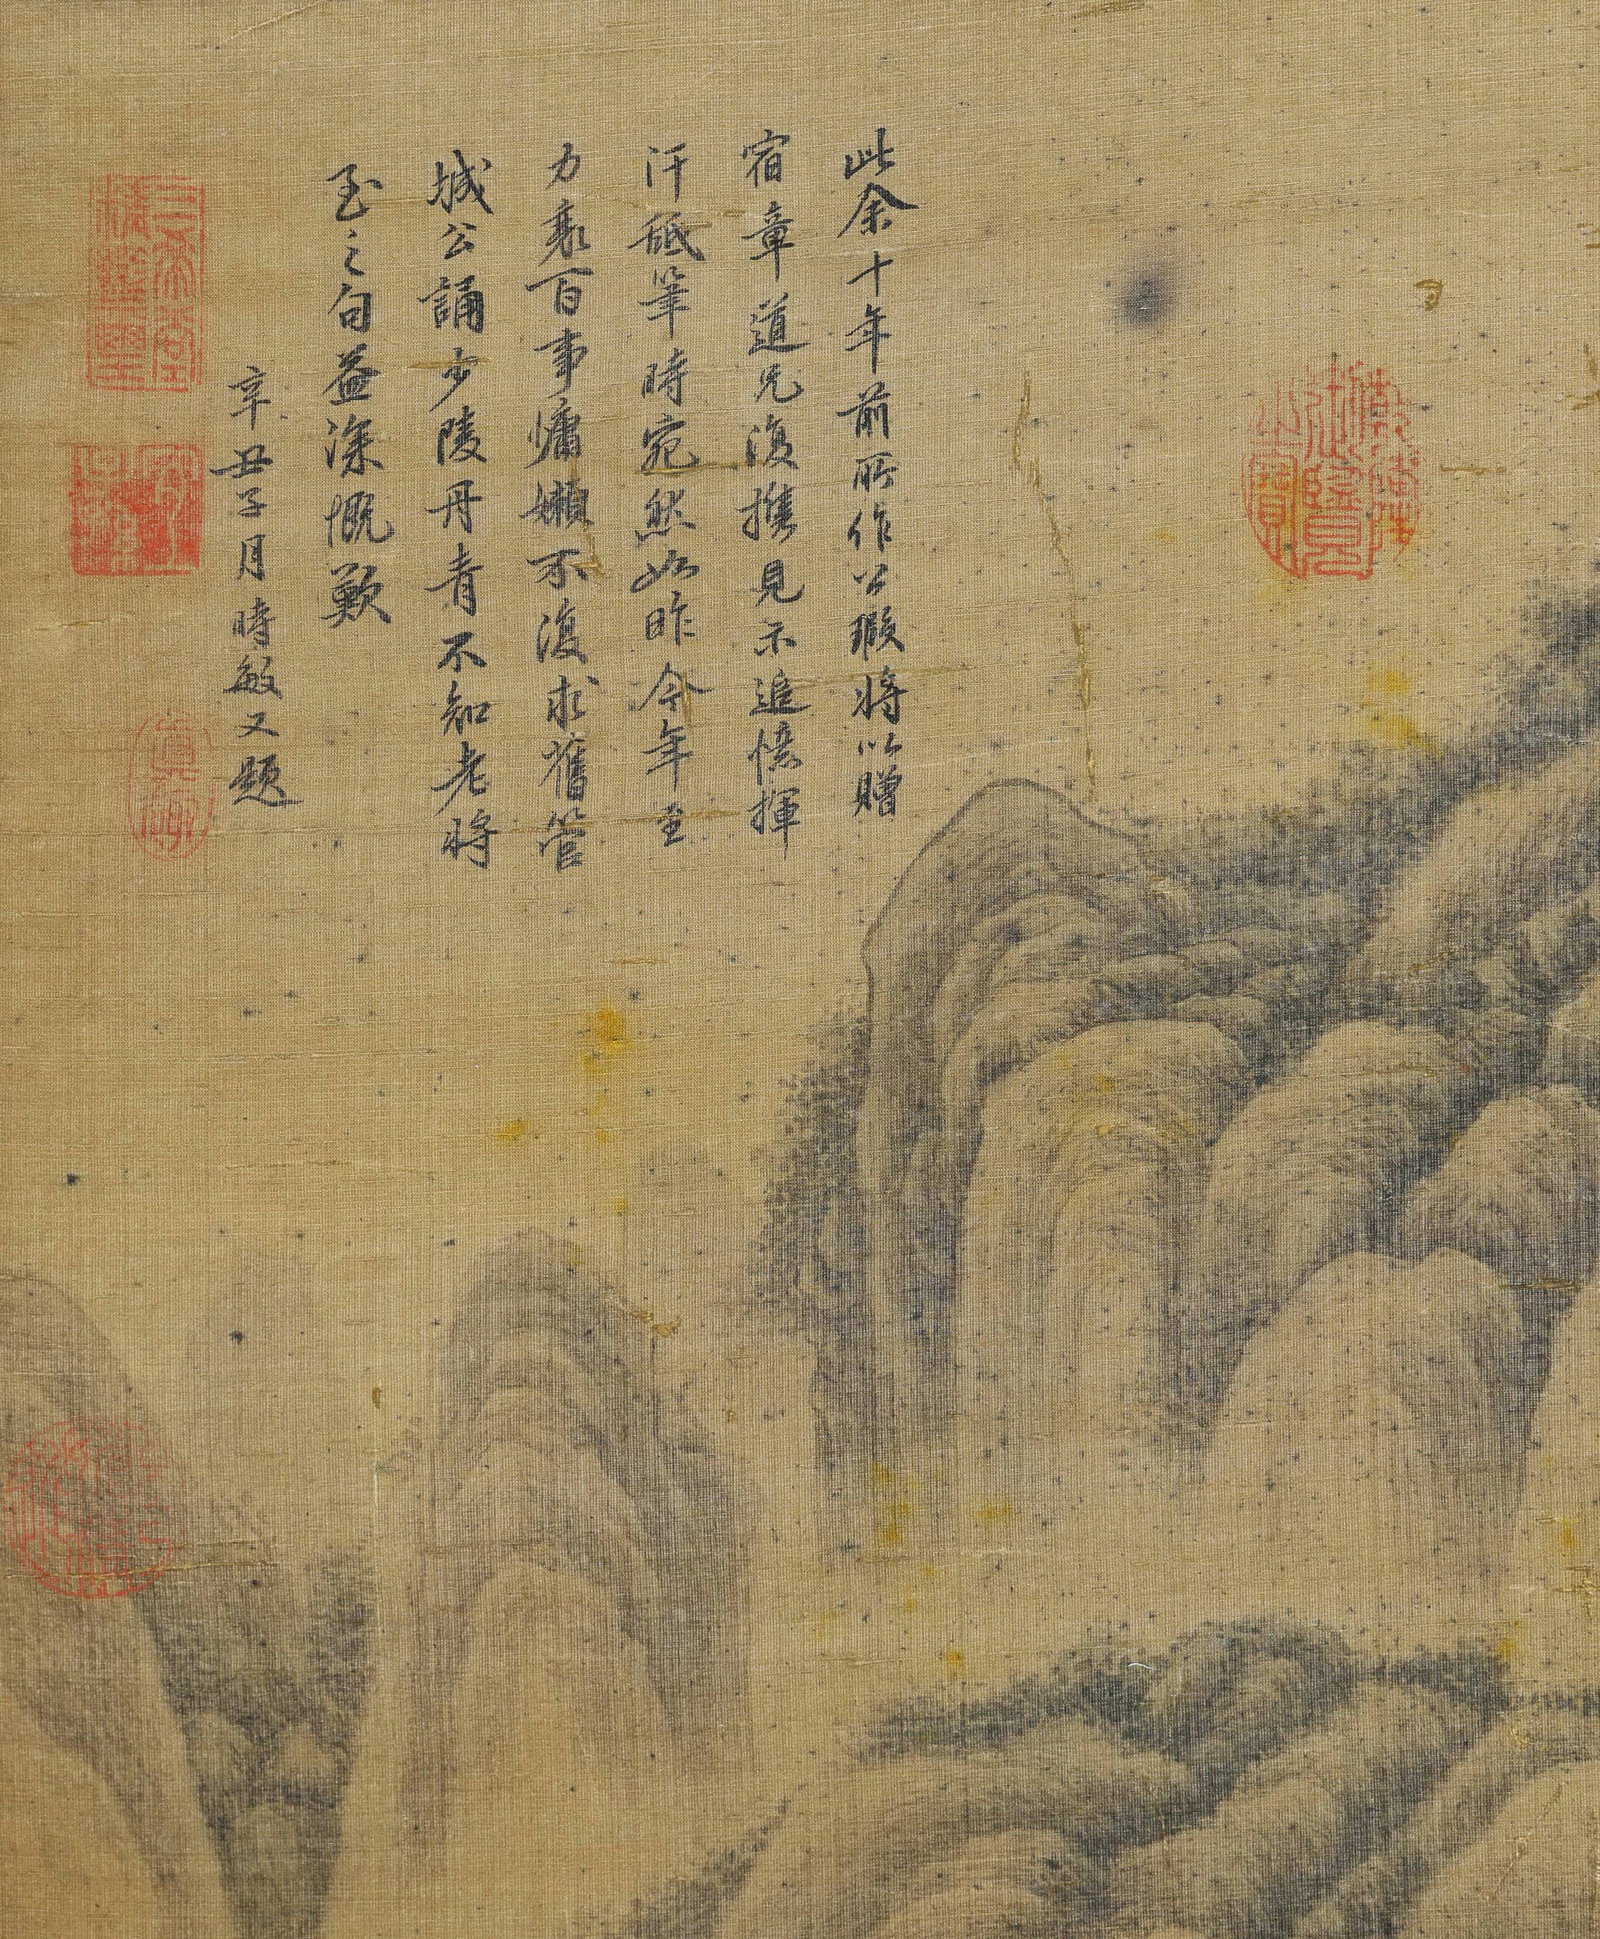 此余十年前所作公瑕將以贈
宿章道兄復攜見示追憶揮
汗舐筆時宛然如昨今年至
力衰百事慵嬾不復求舊管
城公誦少陵丹青不知老將
至之句益深慨歎
辛丑子月時敏又題
乾隆
三希堂
精鑒璽